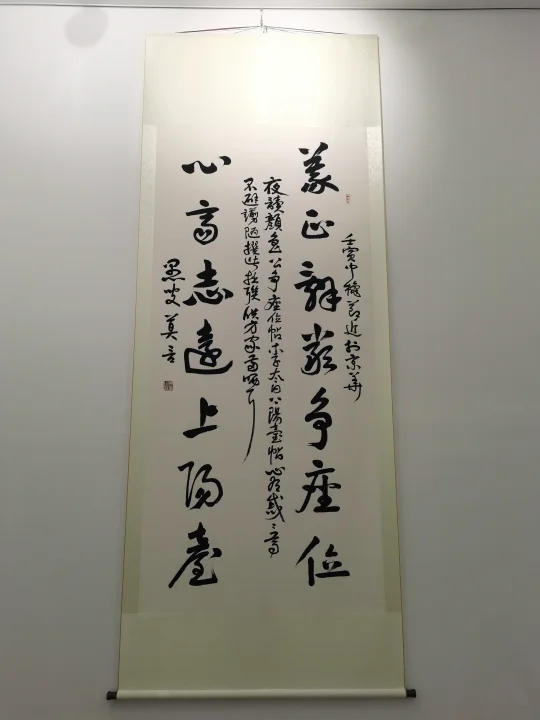 義正辭嚴爭座位
壬寅中穐節近於京華
夜讀顏魯公爭座位帖李太白上陽臺帖心有感之書
不避譾陋撰此拙聯供方家哂
心高志遠上陽臺
愚叟莫言